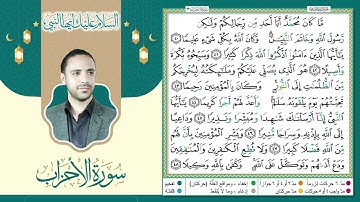 السلام عليك أيها النبي
سورة الأحزاب
مَّا كَانَ مُحَمَّدٌ أَبَآ أَحَدٍ مِّن رِّجَالِكُمْ وَلَٰكِن
رَّسُولَ ٱللَّهِ وَخَاتَمَ ٱلنَّبِيِّـۧنَ وَكَانَ ٱللَّهُ بِكُلِّ شَىْءٍ عَلِيمًا ٤٠
يَٰٓأَيُّهَا ٱلَّذِينَ ءَامَنُوا۟ ٱذْكُرُوا۟ ٱللَّهَ ذِكْرًا كَثِيرًا ٤١ وَسَبِّحُوهُ بُكْرَةً
وَأَصِيلًا ٤٢ هُوَ ٱلَّذِى يُصَلِّى عَلَيْكُمْ وَمَلَٰٓئِكَتُهُۥ لِيُخْرِجَكُم
مِّنَ ٱلظُّلُمَٰتِ إِلَى ٱلنُّورِ وَكَانَ بِٱلْمُؤْمِنِينَ رَحِيمًا ٤٣
تَحِيَّتُهُمْ يَوْمَ يَلْقَوْنَهُۥ سَلَٰمٌ وَأَعَدَّ لَهُمْ أَجْرًا كَرِيمًا ٤٤
يَٰٓأَيُّهَا ٱلنَّبِىُّ إِنَّآ أَرْسَلْنَٰكَ شَٰهِدًا وَمُبَشِّرًا وَنَذِيرًا ٤٥ وَدَاعِيًا
إِلَى ٱللَّهِ بِإِذْنِهِۦ وَسِرَاجًا مُّنِيرًا ٤٦ وَبَشِّرِ ٱلْمُؤْمِنِينَ بِأَنَّ لَهُم
مِّنَ ٱللَّهِ فَضْلًا كَبِيرًا ٤٧ وَلَا تُطِعِ ٱلْكَٰفِرِينَ وَٱلْمُنَٰفِقِينَ
وَدَعْ أَذَىٰهُمْ وَتَوَكَّلْ عَلَى ٱللَّهِ وَكَفَىٰ بِٱللَّهِ وَكِيلًا ٤٨